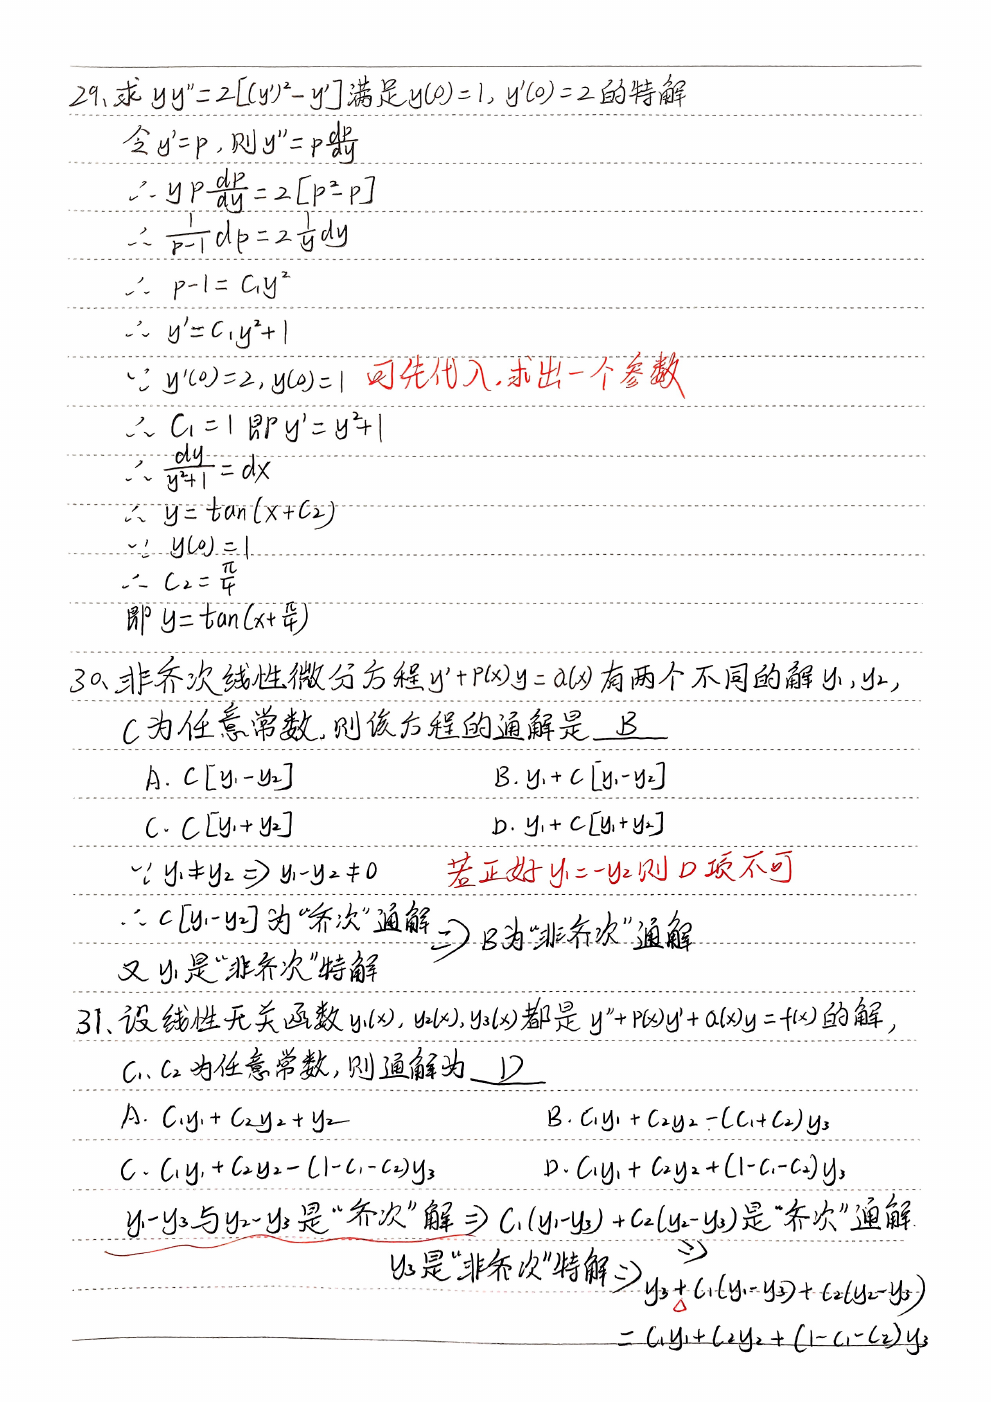 29、求 yy″=2[(y′)²-y′]满足y(0)=1, y′(0)=2的特解
令y′=p，则y″=p dp/dy
∴ yp dp/dy=2[p²-p]
∴ 1/(p-1) dp=2 1/y dy
∴ p-1=C₁y²
∴ y′=C₁y²+1
∵ y′(0)=2, y(0)=1 可先代入，求出一个参数
∴ C₁=1 即y′=y²+1
∴ dy/(y²+1)=dx
∴ y=tan(x+C₂)
∵ y(0)=1
∴ C₂=π/4
即 y=tan(x+π/4)
30、非齐次线性微分方程y′+P(x)y=Q(x)有两个不同的解y₁,y₂,
C为任意常数,则该方程的通解是 B
A. C[y₁-y₂] B. y₁+C[y₁-y₂]
C. C[y₁+y₂] D. y₁+C[y₁+y₂]
∵ y₁≠y₂⇒y₁-y₂≠0 若正好y₁=-y₂则D项不可
∴ C[y₁-y₂]为“齐次”通解 ⇒ B为“非齐次”通解
又y₁是“非齐次”特解
31、设线性无关函数y₁(x), y₂(x), y₃(x)都是 y″+P(x)y′+Q(x)y=f(x)的解,
C₁、C₂为任意常数,则通解为 D
A. C₁y₁+C₂y₂+y₂ B. C₁y₁+C₂y₂-(C₁+C₂)y₃
C. C₁y₁+C₂y₂-(1-C₁-C₂)y₃ D. C₁y₁+C₂y₂+(1-C₁-C₂)y₃
y₁-y₃与y₂-y₃是“齐次”解⇒C₁(y₁-y₃)+C₂(y₂-y₃)是“齐次”通解
y₃是“非齐次”特解⇒ ⇒
y₃+C₁(y₁-y₃)+C₂(y₂-y₃)
=C₁y₁+C₂y₂+(1-C₁-C₂)y₃